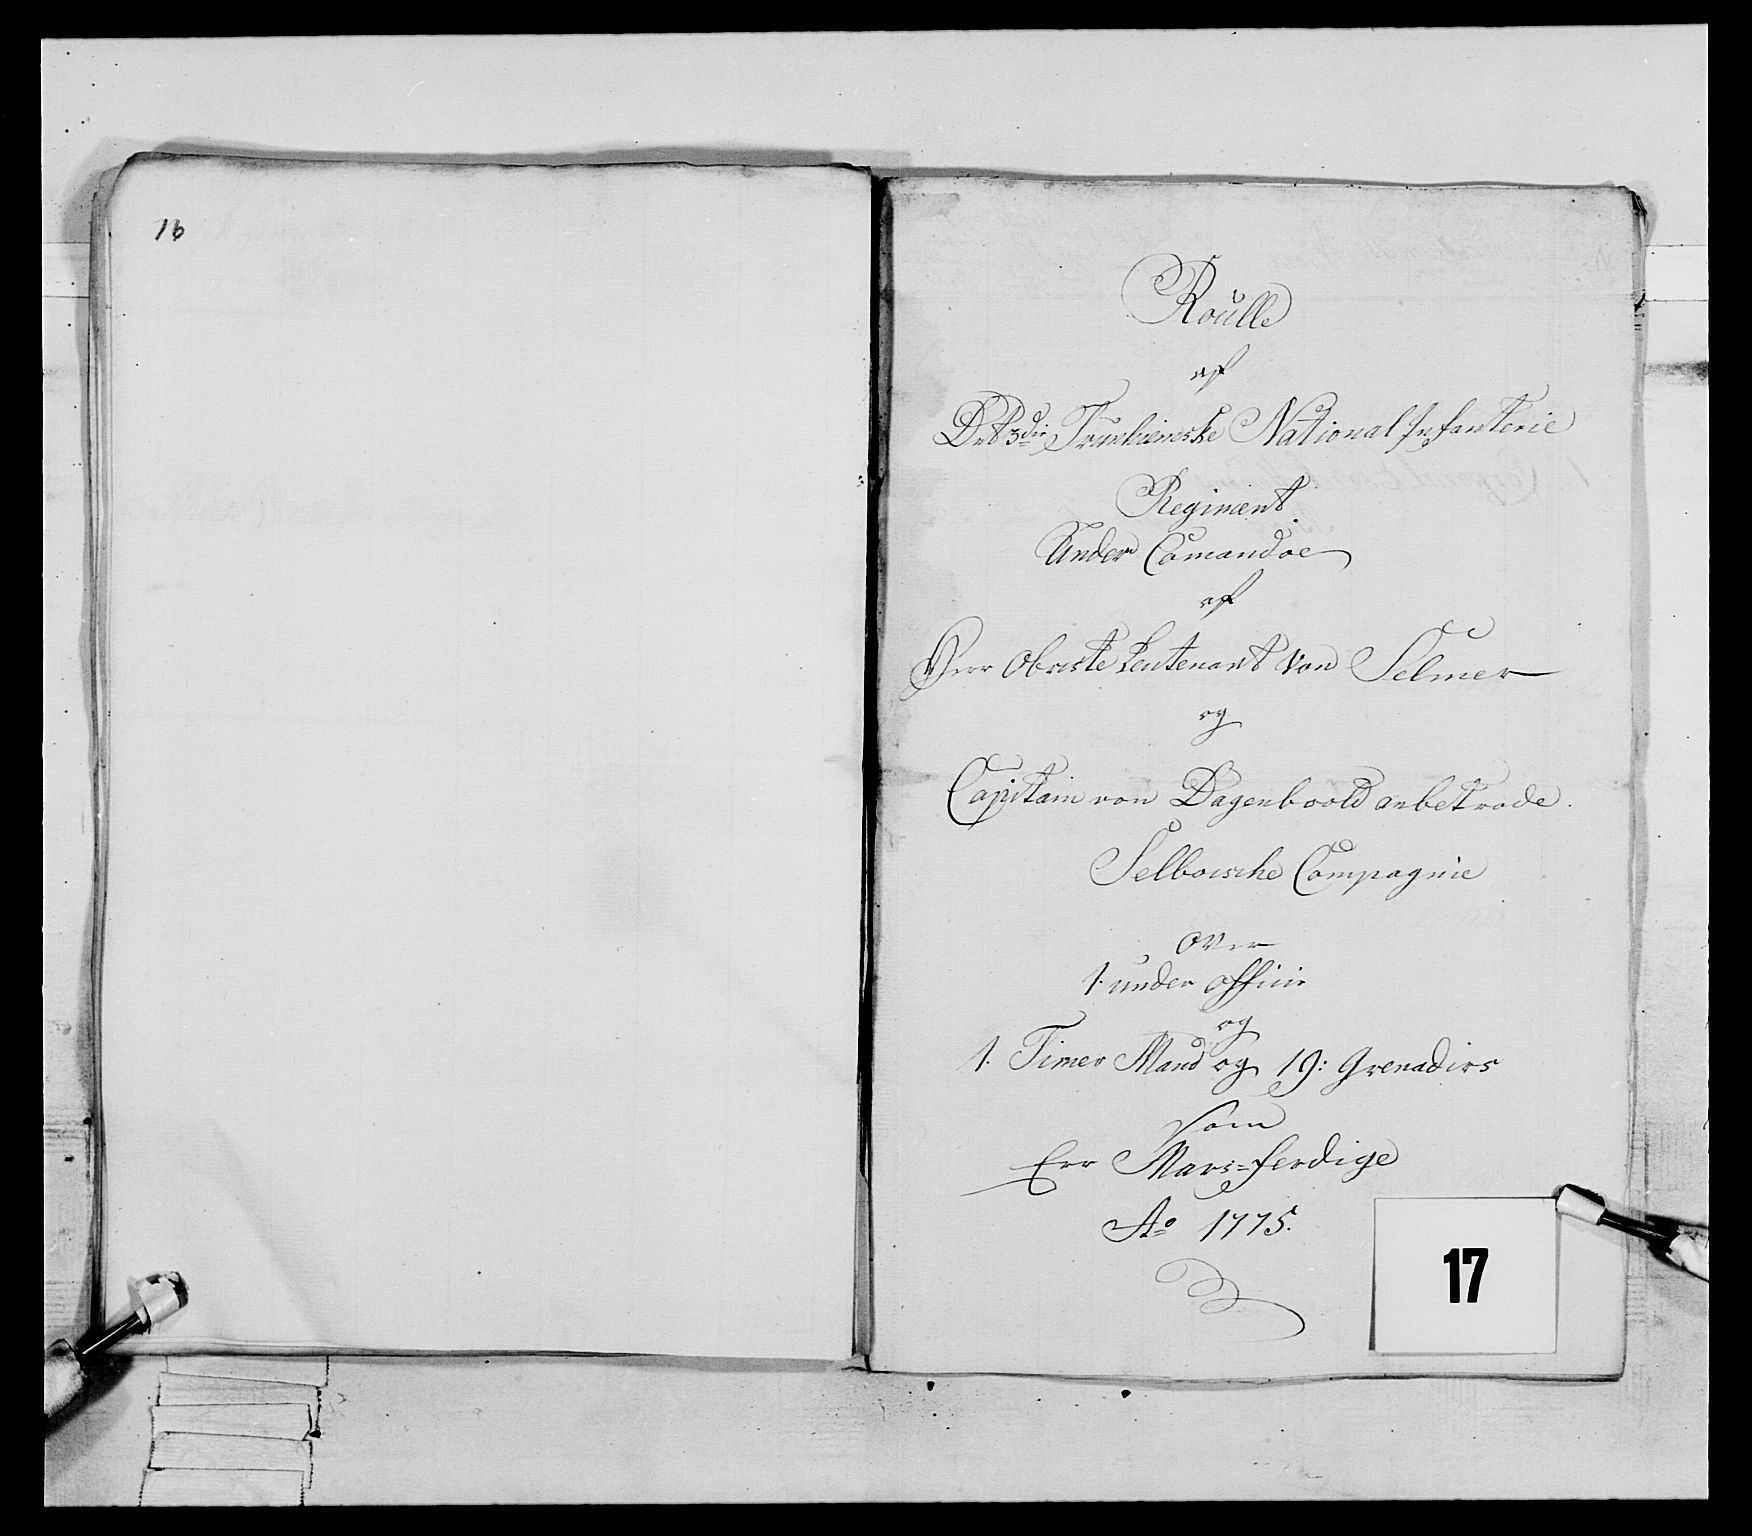 16
Roulle
af
Det 3die Trunhiemske National Infanterie
Regiment
Under Comandoe
af
Herr Obriste Leutenant von Selmer
og
Capitain von Dagenboold anbetrode
Selboische Compagnie
over
1. under officir
og
1. Timer Mand og 19: Grenadirs
som
Err Mars=ferdige
Ao 1775.
17